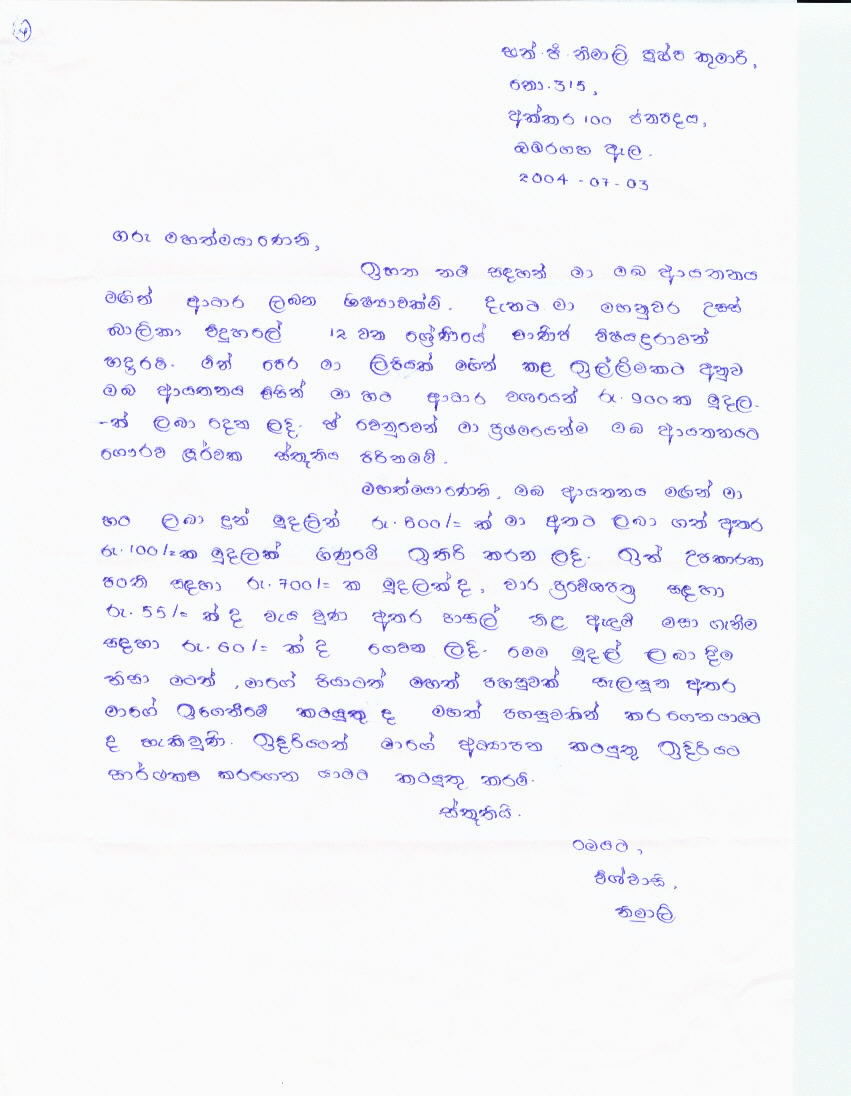 4
එන්.ජී. නිමාලි පුෂ්ප කුමාරි,
නො. 315,
අක්කර 100 ජනපදය,
බඹරගහ ඇල.
2004-07-03
ගරු මහත්මයාණෙනි,
ඉහත නම් සඳහන් මා ඔබ ආයතනය
මඟින් ආධාර ලබන ශිෂ්‍යාවක්මි. දැනට මා මහනුවර උසස්
බාලිකා විදුහලේ 12 වන ශ්‍රේණියේ වාණිජ විෂයධාරාවන්
හදාරමි. මින් පෙර මා ලිපියක් මඟින් කළ ඉල්ලීමකට අනුව
ඔබ ආයතනය විසින් මා හට ආධාර වශයෙන් රු. 900ක මුදල
-ක් ලබා දෙන ලදි. ඒ වෙනුවෙන් මා ප්‍රථමයෙන්ම ඔබ ආයතනයට
ගෞරව පූර්වක ස්තූතිය පිරිනමමි.
මහත්මයාණෙනි, ඔබ ආයතනය මඟින් මා
හට ලබා දුන් මුදලින් රු. 800/= ක් මා අතට ලබා ගත් අතර
රු. 100/=ක මුදලක් ගිණුමේ ඉතිරි කරන ලදි. ඉන් උපකාරක
පංති සඳහා රු. 700/= ක මුදලක්ද, වාර ප්‍රවේශපත්‍ර සඳහා
රු. 55/= ක් ද වැය වුණා අතර පාසල් නිළ ඇඳුම් මසා ගැනීම
සඳහා රු. 60/= ක් ද ගෙවන ලදි. මෙම මුදල් ලබා දීම
නිසා මටත්, මාගේ පියාටත් මහත් පහසුවක් සැලසුන අතර
මාගේ ඉගෙනීමේ කටයුතු ද මහත් පහසුවකින් කරගෙනයාමට
ද හැකිවුණි. ඉදිරියටත් මාගේ අධ්‍යාපන කටයුතු ඉදිරියට
සාර්ථකව කරගෙන යාමට කටයුතු කරමි.
ස්තූතියි.
මෙයට,
විශ්වාසි,
නිමාලි